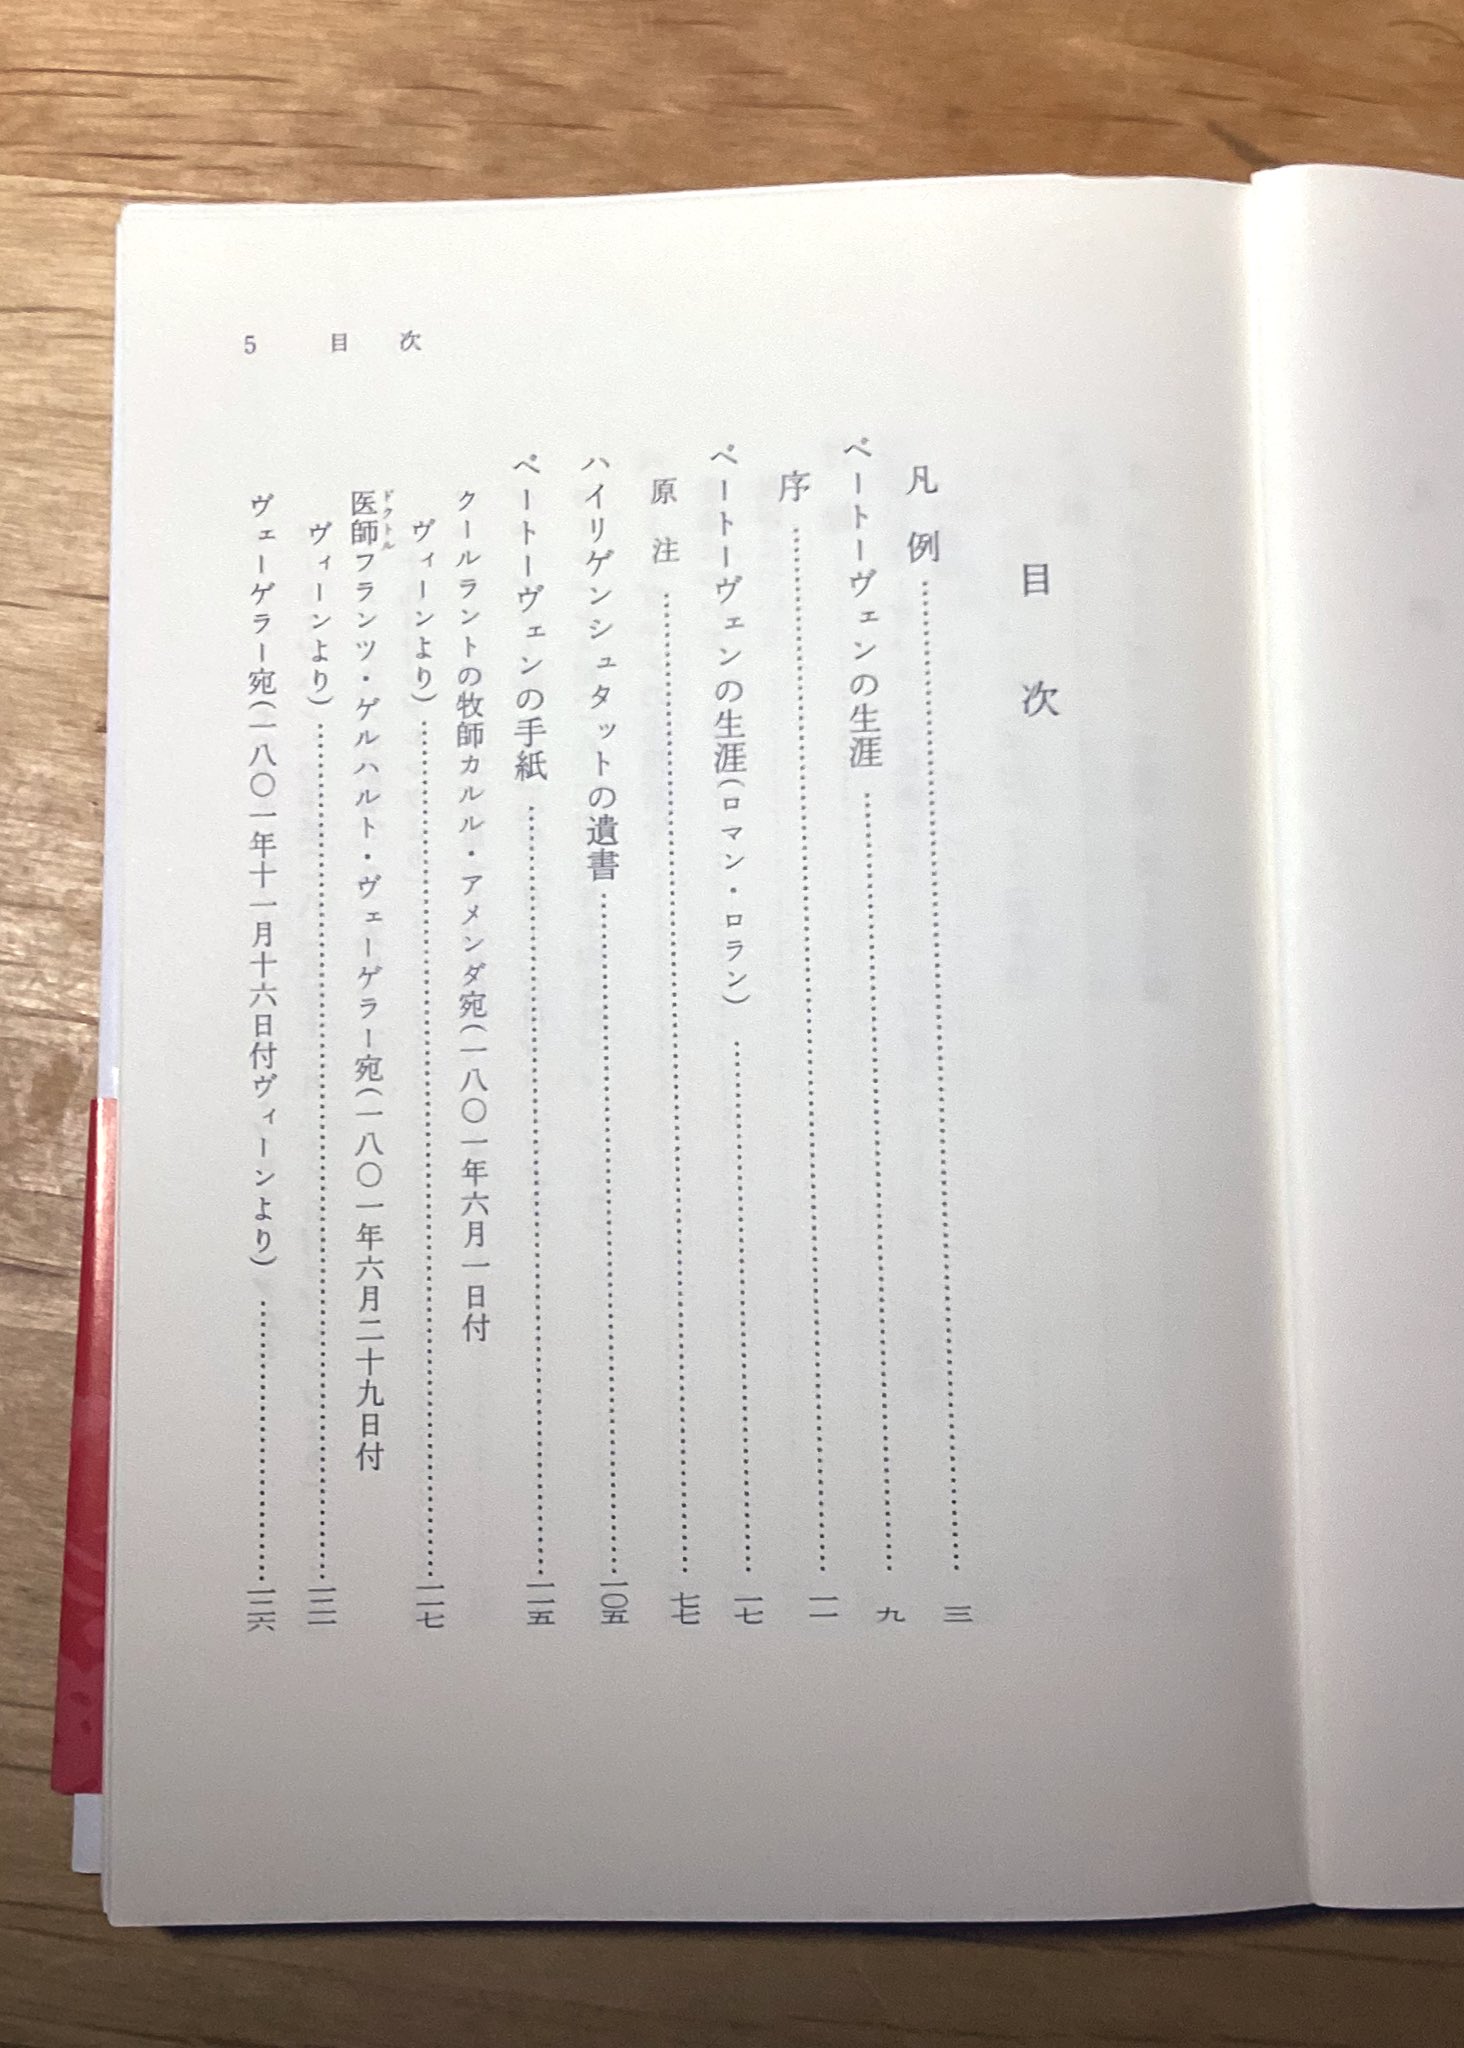 目次
凡例……三
ベートーヴェンの生涯……九
序……一一
ベートーヴェンの生涯(ロマン・ロラン)……一七
原注……七七
ハイリゲンシュタットの遺書……一〇五
ベートーヴェンの手紙……一一五
クールラントの牧師カルル・アメンダ宛(一八〇一年六月一日付
ヴィーンより)……一一七
医師フランツ・ゲルハルト・ヴェーゲラー宛(一八〇一年六月二十九日付
ドクトル
ヴィーンより)……一二一
ヴェーゲラー宛(一八〇一年十一月十六日付ヴィーンより)……一二六
5 目次